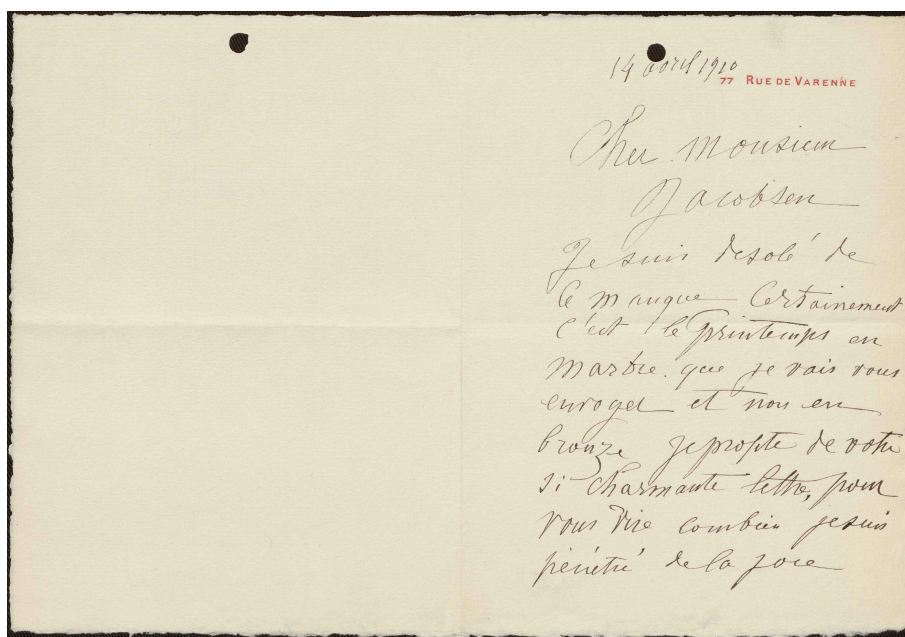 14 avril 1910
77 RUE DE VARENNE
Cher Monsieur
Jacobsen
Je suis desolé de
ce manque Certainement
c'est le Printemps en
marbre que je vais vous
envoyer et non en
bronze je profite de votre
si charmante lettre, pour
vous dire combien je suis
pénétré de la joie